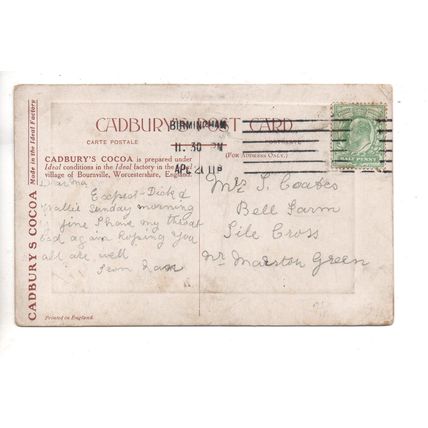 CADBURY'S COCOA
Made in the Ideal Factory
CADBURY POST CARD
CARTE POSTALE
CADBURY'S COCOA is prepared under
Ideal conditions in the Ideal factory in the
village of Bournville, Worcestershire, England.
(FOR ADDRESS ONLY.)
BIRMINGHAM
11.30 PM
AP 21 11
HALF PENNY
Dear ma
Expect Dick &
Sunday morning
fine I have my throat
bad again hoping you
all are well
from
Coates
Bell Farm
Sile Cross
Nr Marston Green
Printed in England.